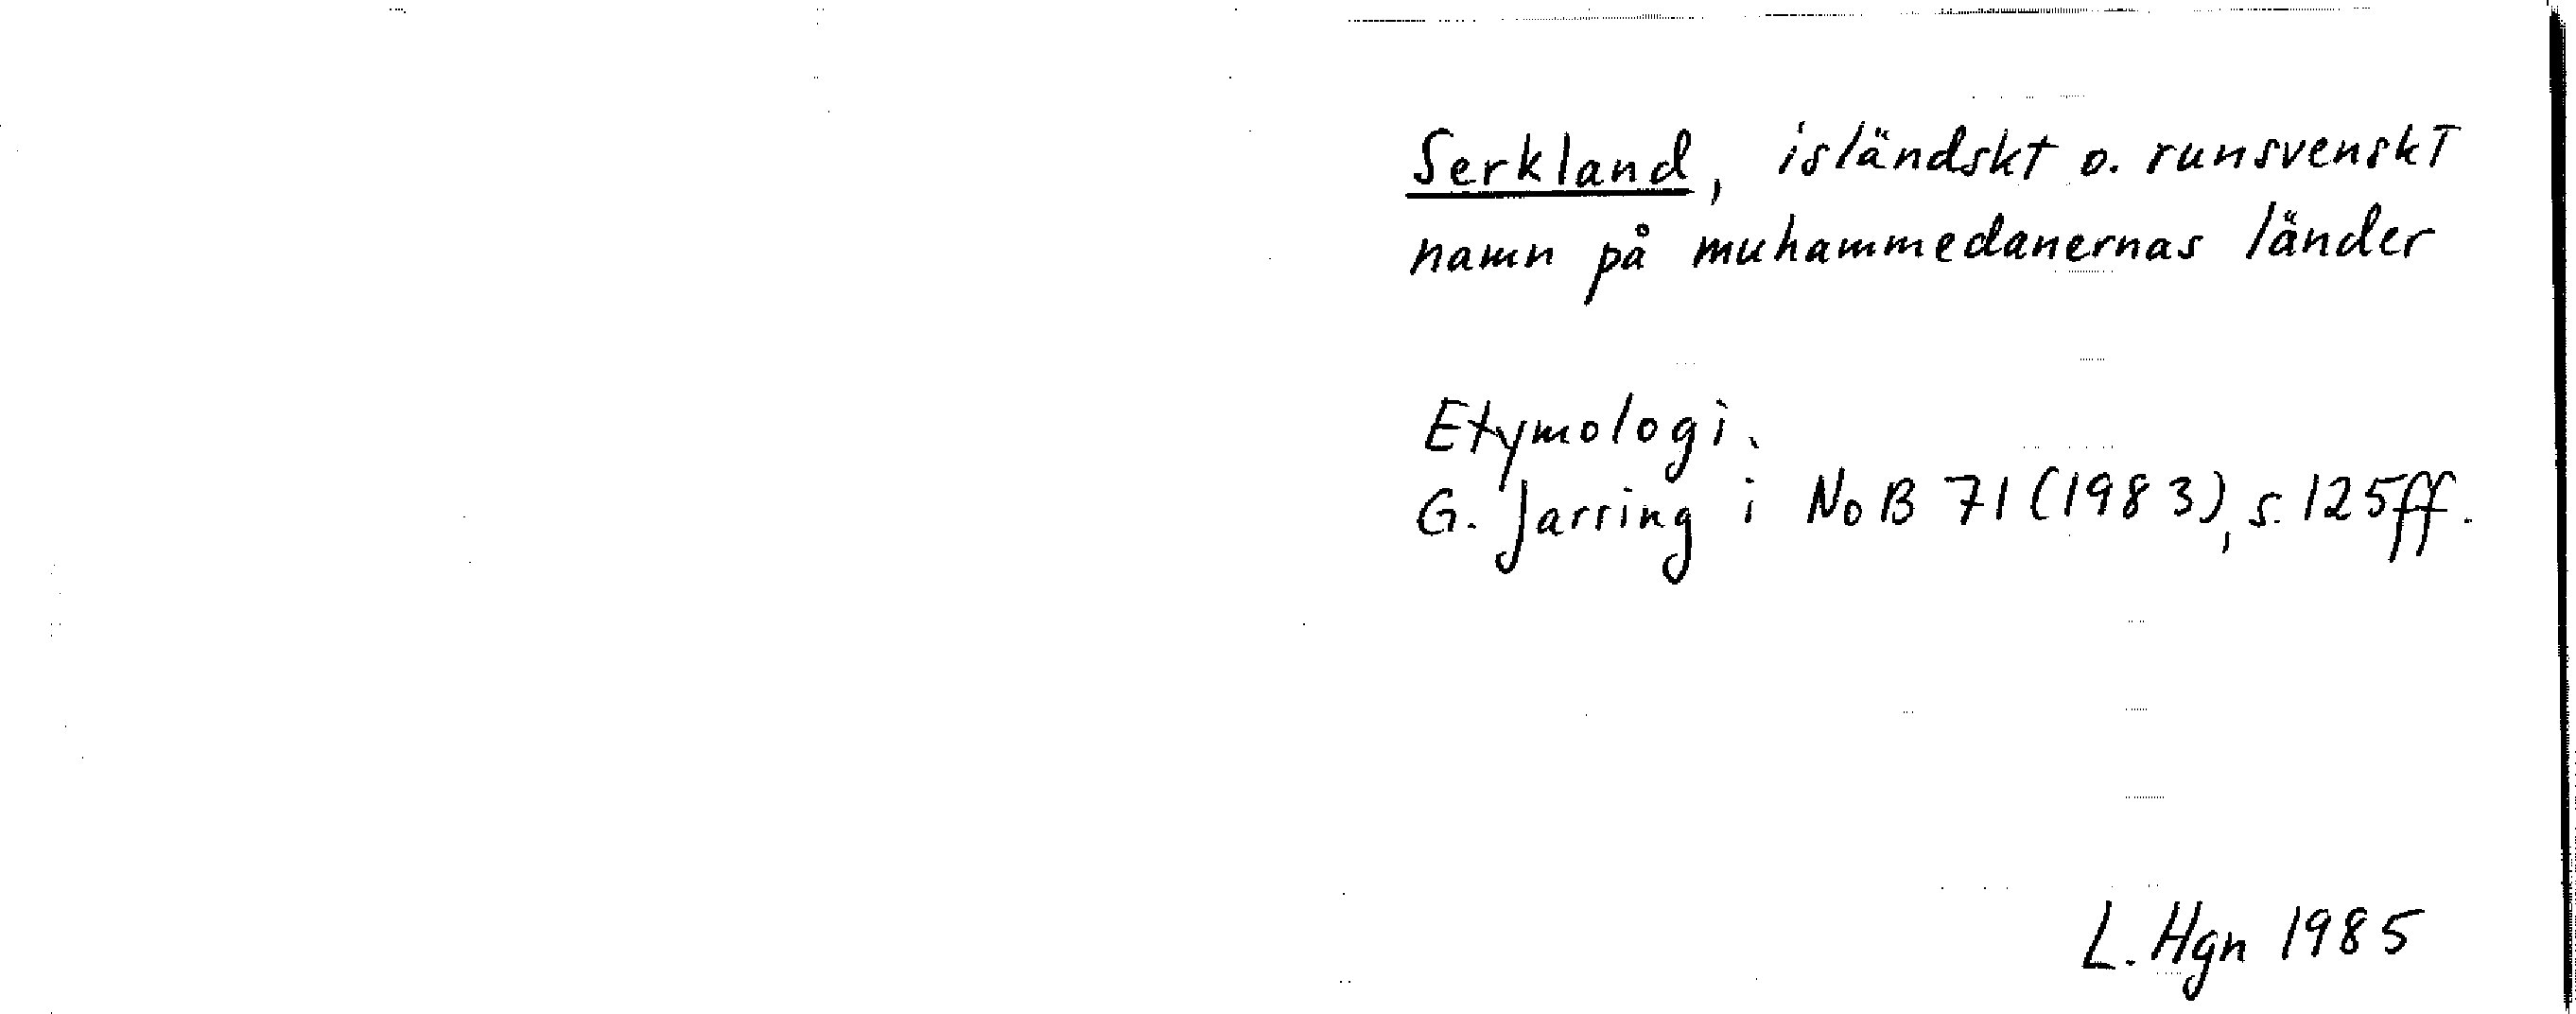 Serkland, isländskt o. runsvenskt
namn på muhammedanernas länder
Etymologi.
G. Jarring i NoB 71 (1983), s. 125ff.
L. Hgn 1985